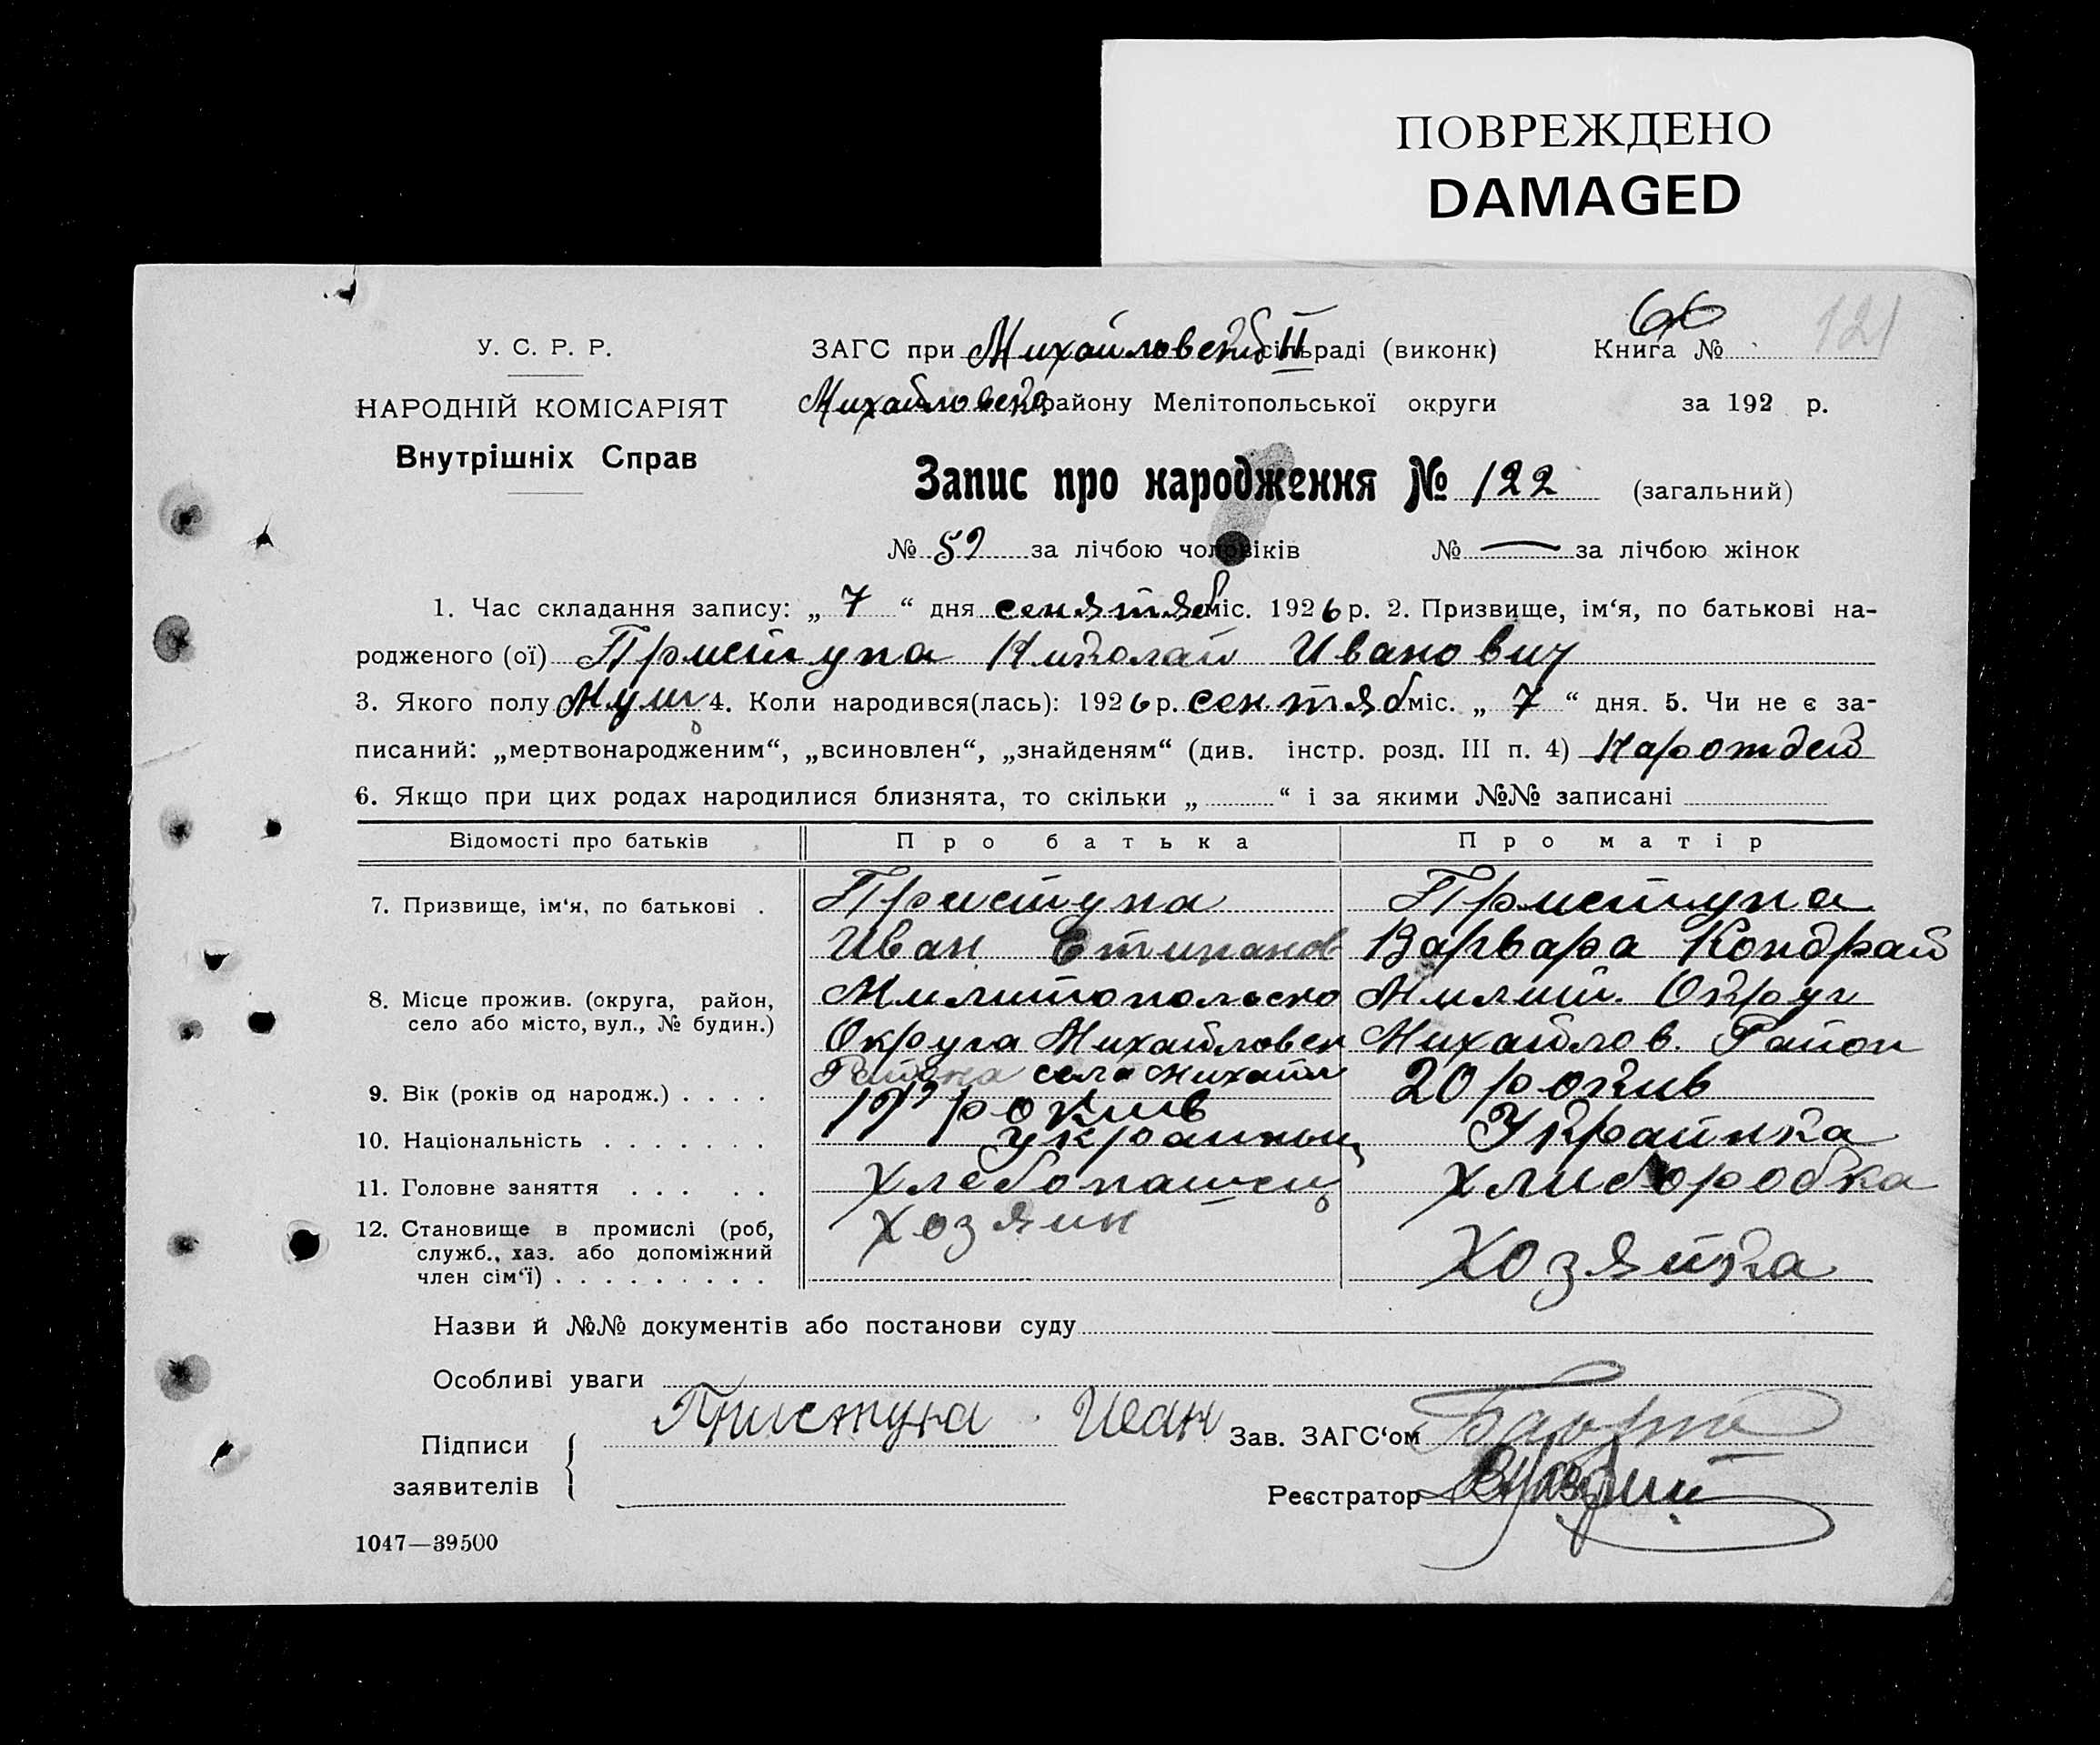 ПОВРЕЖДЕНО
DAMAGED
66
121
У. С. Р. Р.
ЗАГС при Михайловской II сільраді (виконк)
Книга №
НАРОДНІЙ КОМІСАРІЯТ
Михайловско району Мелітопольської округи
за 192 р.
Внутрішніх Справ
Запис про народження № 122 (загальний)
№ 59 за лічбою чоловіків № — за лічбою жінок
1. Час складання запису: „ 7 “ дня сентяб міс. 1926 р. 2. Призвище, ім‘я, по батькові на-
родженого (ої) Приступа Николай Иванович
3. Якого полу Муш 4. Коли народився(лась): 1926 р. сентяб міс. „ 7 “ дня. 5. Чи не є за-
писаний: „мертвонародженим“, „всиновлен“, „знайденям“ (див. інстр. розд. III п. 4)
6. Якщо при цих родах народилися близнята, то скільки „ “ і за якими №№ записані
Відомості про батьків Про батька Про матір
7. Призвище, ім‘я, по батькові . Приступа Приступа
Иван Стипанов Варвара Кондрат
8. Місце прожив. (округа, район, село або місто, вул., № будин.) Милитопольско Милит. Округ
Округа Михайловск Михайлов. Район
Района села Михайл
9. Вік (років од народж.) . . . . 19 рокив 20 рокив
10. Національність . . . . . . . украиныц Украинка
11. Головне заняття . . . . . Хлебопашец хлиборобка
12. Становище в промислі (роб, служб., хаз. або допоміжний член сім‘ї) . . . . . . . . . хозяин Хозяйка
Назви й №№ документів або постанови суду
Особливі уваги
Підписи заявителів Приступа Иван
Зав. ЗАГС‘ом
Реєстратор
1047—39500